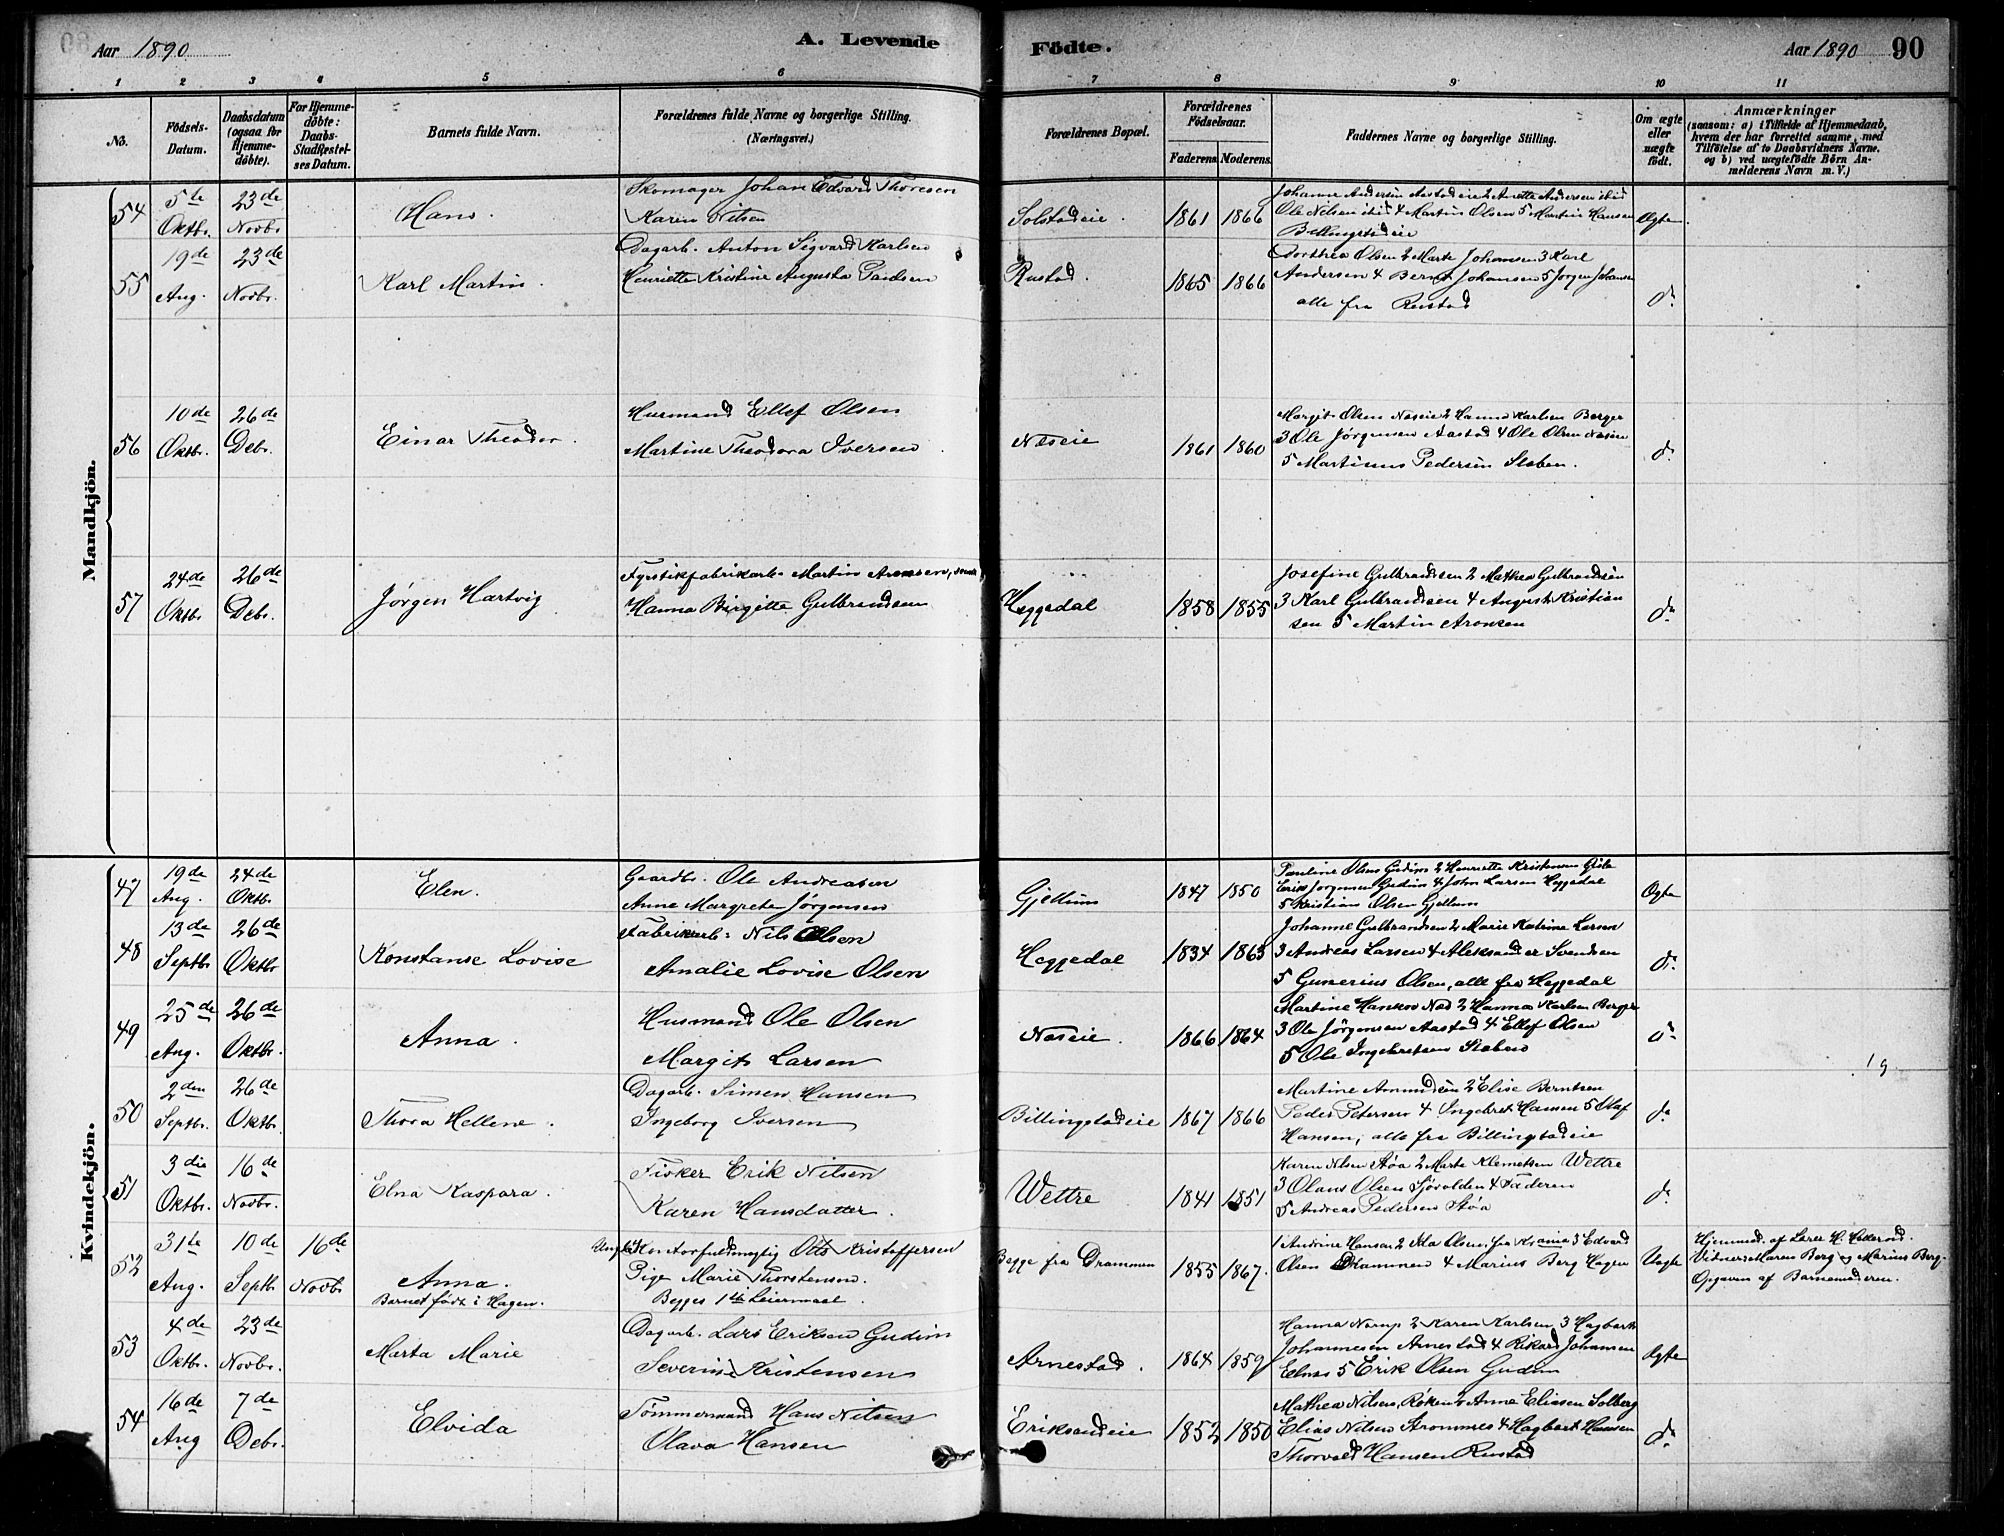 Aar 1890
A. Levende
Födte.
Aar 1890
90
1 2 3 4 5 6 7 8 9 10 11
No.
Födsels-Datum.
Daabsdatum (ogsaa for Hjemme-döbte).
For Hjemme-döbte: Daabs-Stadfæstel-ses Datum.
Barnets fulde Navn.
Forældrenes fulde Navne og borgerlige Stilling. (Næringsvei.)
Forældrenes Bopæl.
Forældrenes Födselsaar.
Faderens Moderens
Faddernes Navne og borgerlige Stilling.
Om ægte eller uægte födt.
Anmærkninger
(saasom: a) i Tilfælde af Hjemmedaab, hvem der har forrettet samme, med Tilföielse af to Daabsvidners Navne, og b) ved uægtefödte Börn An-melderens Navn m. V.)
Mandkjön.
54 5te Oktbr. 23de Novbr. Hans.
Skomager Johan Edvard Thoresen
Karen Nilsen
Solstadeie. 1861 1866
Johanne Andersen Aastadeie 2 Anette Andersen ibid
Ole Nelsen ibid 4 Martin Olsen 5 Martin Hansen
Billingstadeie
Ægte.
55 19de Aug. 23de Novbr. Karl Martin.
Dagarb. Anton Sigvard Karlsen
Henriette Kristine Augusta Paulsen
Rustad. 1865 1866
Dorthea Olsen 2 Marte Johansen 3 Karl
Andersen 4 Bernt Johansen 5 Jørgen Johansen
alle fra Rustad
do
56 10de Oktbr. 26de Debr. Einar Theodor.
Husmand Ellef Olsen
Martine Theodora Iversen
Næseie 1861 1860
Margit Olsen Næseie 2 Hanna Karlsen Berger
3 Ole Jørgensen Aastad 4 Ole Olsen Næseie
5 Martinus Pedersen Staben.
do
57 24de Oktbr. 26de Debr. Jørgen Hartvig
Fyrstikfabrikarb. Martin Aronsen, svensk
Hanna Birgitte Gulbrandsen
Heggedal 1858 1855
Josefine Gulbrandsen 2 Mathea Gulbrandsen
3 Karl Gulbrandsen 4 August Kristian
sen 5 Martin Aronsen
do
Kvindekjön.
47 19de Aug. 24de Oktbr. Elen.
Gaardbr. Ole Andreasen
Anne Margrete Jørgensen
Gjellum 1847 1850
Pauline Olsen Gudim 2 Henriette Kristensen Gisle
Erik Jørgensen Gudim 4 John Larsen Heggedal
5 Kristian Olsen Gjellum
Ægte
48 13de Septbr. 26de Oktbr. Konstanse Lovise
Fabrikarb. Nils Olsen
Amalie Lovise Olsen
Heggedal 1834 1863
Johanne Gulbrandsen 2 Marie Katrine Larsen
3 Andreas Larsen 4 Aleksander Svendsen
5 Gunerius Olsen, alle fra Heggedal
do
49 25de Aug. 26de Oktbr. Anna.
Husmand Ole Olsen
Margit Larsen
Næseie. 1866 1864
Martine Hansen Næs 2 Hanna Karlsen Berger
3 Ole Jørgensen Aastad 4 Ellef Olsen
5 Ole Ingebretsen Staben
do
50 2den Septbr. 26de Oktbr. Thora Hellene.
Dagarb. Simen Hansen
Ingeborg Iversen
Billingstadeie 1867 1866
Martine Amundsen 2 Elise Berntsen
Peder Petersen 4 Ingebret Hansen 5 Olaf
Hansen, alle fra Billingstadeie
do
51 3die Oktbr. 16de Novbr. Elna Kaspara.
Fisker Erik Nilsen
Karen Hansdatter.
Wettre 1841 1851
Karen Nilsen Støa 2 Marte Klemetsen Wettre
3 Olaus Olsen Sjøvolden 4 Faderen
5 Andreas Pedersen Støa
do
52 31te Aug. 10de Septbr. 16de Novbr. Anna.
Barnet født i Hagen.
Ungk. Kontorfuldmægtig Otto Kristoffersen
Pige Marie Thorstensen.
Begges 1ste Leiermaal.
Begge fra Drammen 1855 1867.
1 Andrine Hansen 2 Ida Olsen, fra Krania 3 Edvard
Olsen Drammen 4 Marius Berg Hagen
Uægte
Hjemmed. af Lærer H. Hellerud.
Vidner: Maren Berg og Marius Berg.
Opgaven af Barnemoderen.
53 4de Oktbr. 23de Novbr. Marta Marie
Dagarb. Lars Eriksen Gudim
Severine Kristensen
Arnestad. 1864 1859
Hanna Norup 2 Karen Karlsen 3 Hagbart
Johannesen Arnestad 4 Rikard Johansen
Elnes 5 Erik Olsen Gudim
Ægte
54 16de Aug 7de Debr. Elvida
Tømmermand Hans Nilsen
Olava Hansen
Eriksandeie 1852 1850
Mathea Nilsen, Røken 2 Anne Eliesen Solberg
Elias Nilsen Strommes 4 Hagbart Hansen
Thorvald Hansen Rustad
do